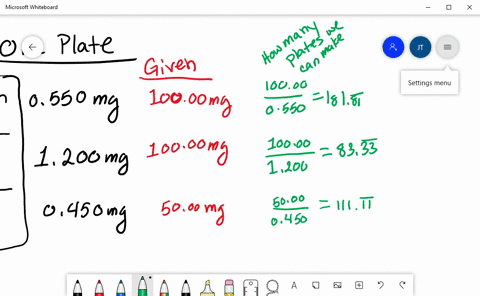 Microsoft Whiteboard
Plate
How many
plates we
can make
Given
JT
Settings menu
0.550 mg
100.00 mg
100.00
0.550
= 181.8̅1̅
1.200 mg
100.00 mg
100.00
1.200
= 83.3̅3̅
0.450 mg
50.00 mg
50.00
0.450
= 111.1̅1̅
A